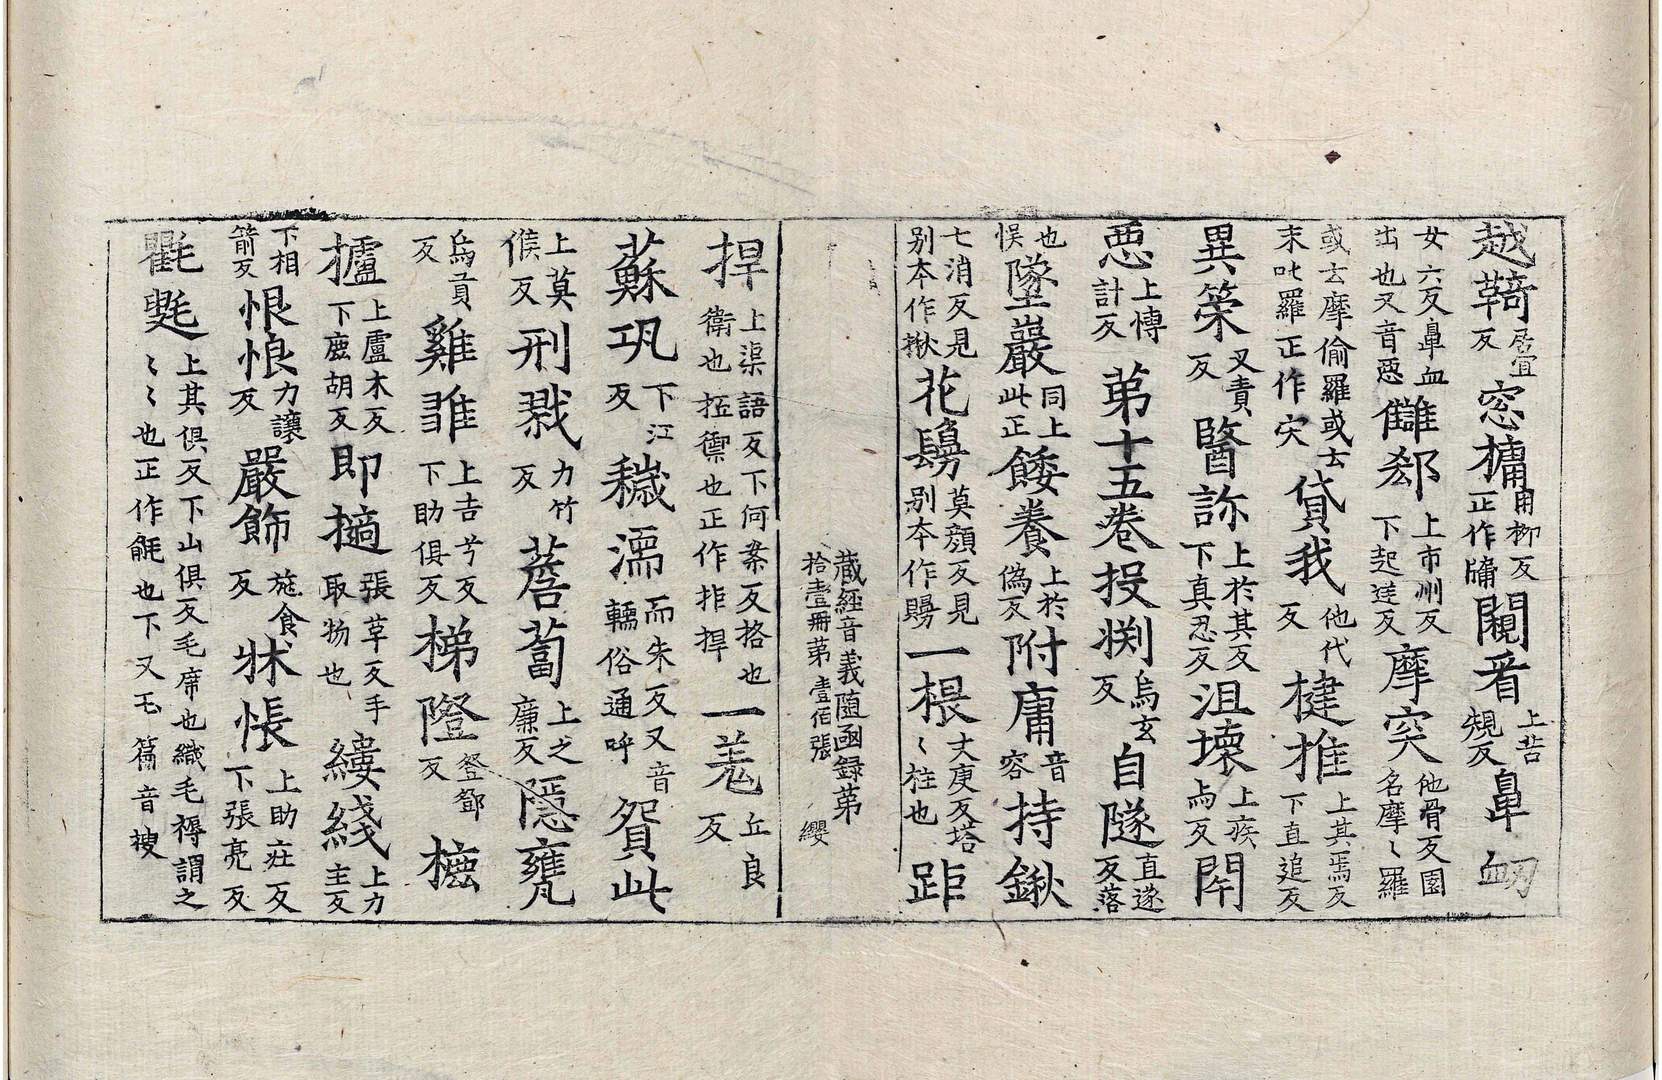 越䩭居宜反窓牗由柳反正作牖闚看上苦規反鼻衂
女六反鼻血出也又音恧讎郄上市州反下起逆反摩突他骨反國名摩〻羅
或云摩偷羅或云末吐羅正作宊貸我他代反揵推上其焉反下直追反
異筞叉責反醫訡上於其反下真忍反沮壞上疾与反閇
惡上慱計反第十五卷投渕烏玄反自隧直遂反落
也悮墜巖同上此正餧養上於偽反附庸音容持鍬
七消反見别本作揪花鬘莫顔反見别本作䝡一棖丈庚反塔〻柱也距
藏經音義随函録苐拾壹冊苐壹佰張 纓
捍上渠語反下何案反格也衛也抂禦也正作拒捍一羗丘良反
蘇巩下江反穢濡而朱反又音軟俗通呼貿此
上莫候反刑戮力竹反薝蔔上之廉反隱甕
烏貢反雞雖上吉兮反下助俱反梯隥登鄧反櫨
攎上盧木反下鹿胡反即擿張革反手取物也縷綫上力主反
下相箭反悢悢力讓反嚴飾施食反牀悵上助莊反下張亮反
氍毹上其俱反下山俱反毛席也織毛褥謂之〻〻也正作㲣也下又毛篇音搜